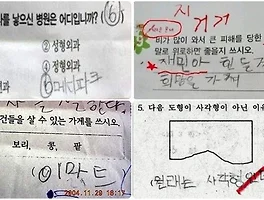 를 낳으신 병원은 어디입니까? (6)
② 성형외과
④ 정형외과
전과
⑥메디파크
건들을 살 수 있는 가게를 쓰시오.
보리, 콩, 팥
(이마트)
2004.11.29 18:17
지
거 거
비가 많이 와서 큰 피해를 당한
말로 위로하면 좋을지 쓰시오.
재민아 힘들
희망을 가져
5. 다음 도형이 사각형이 아닌 이유
(원래는 사각형